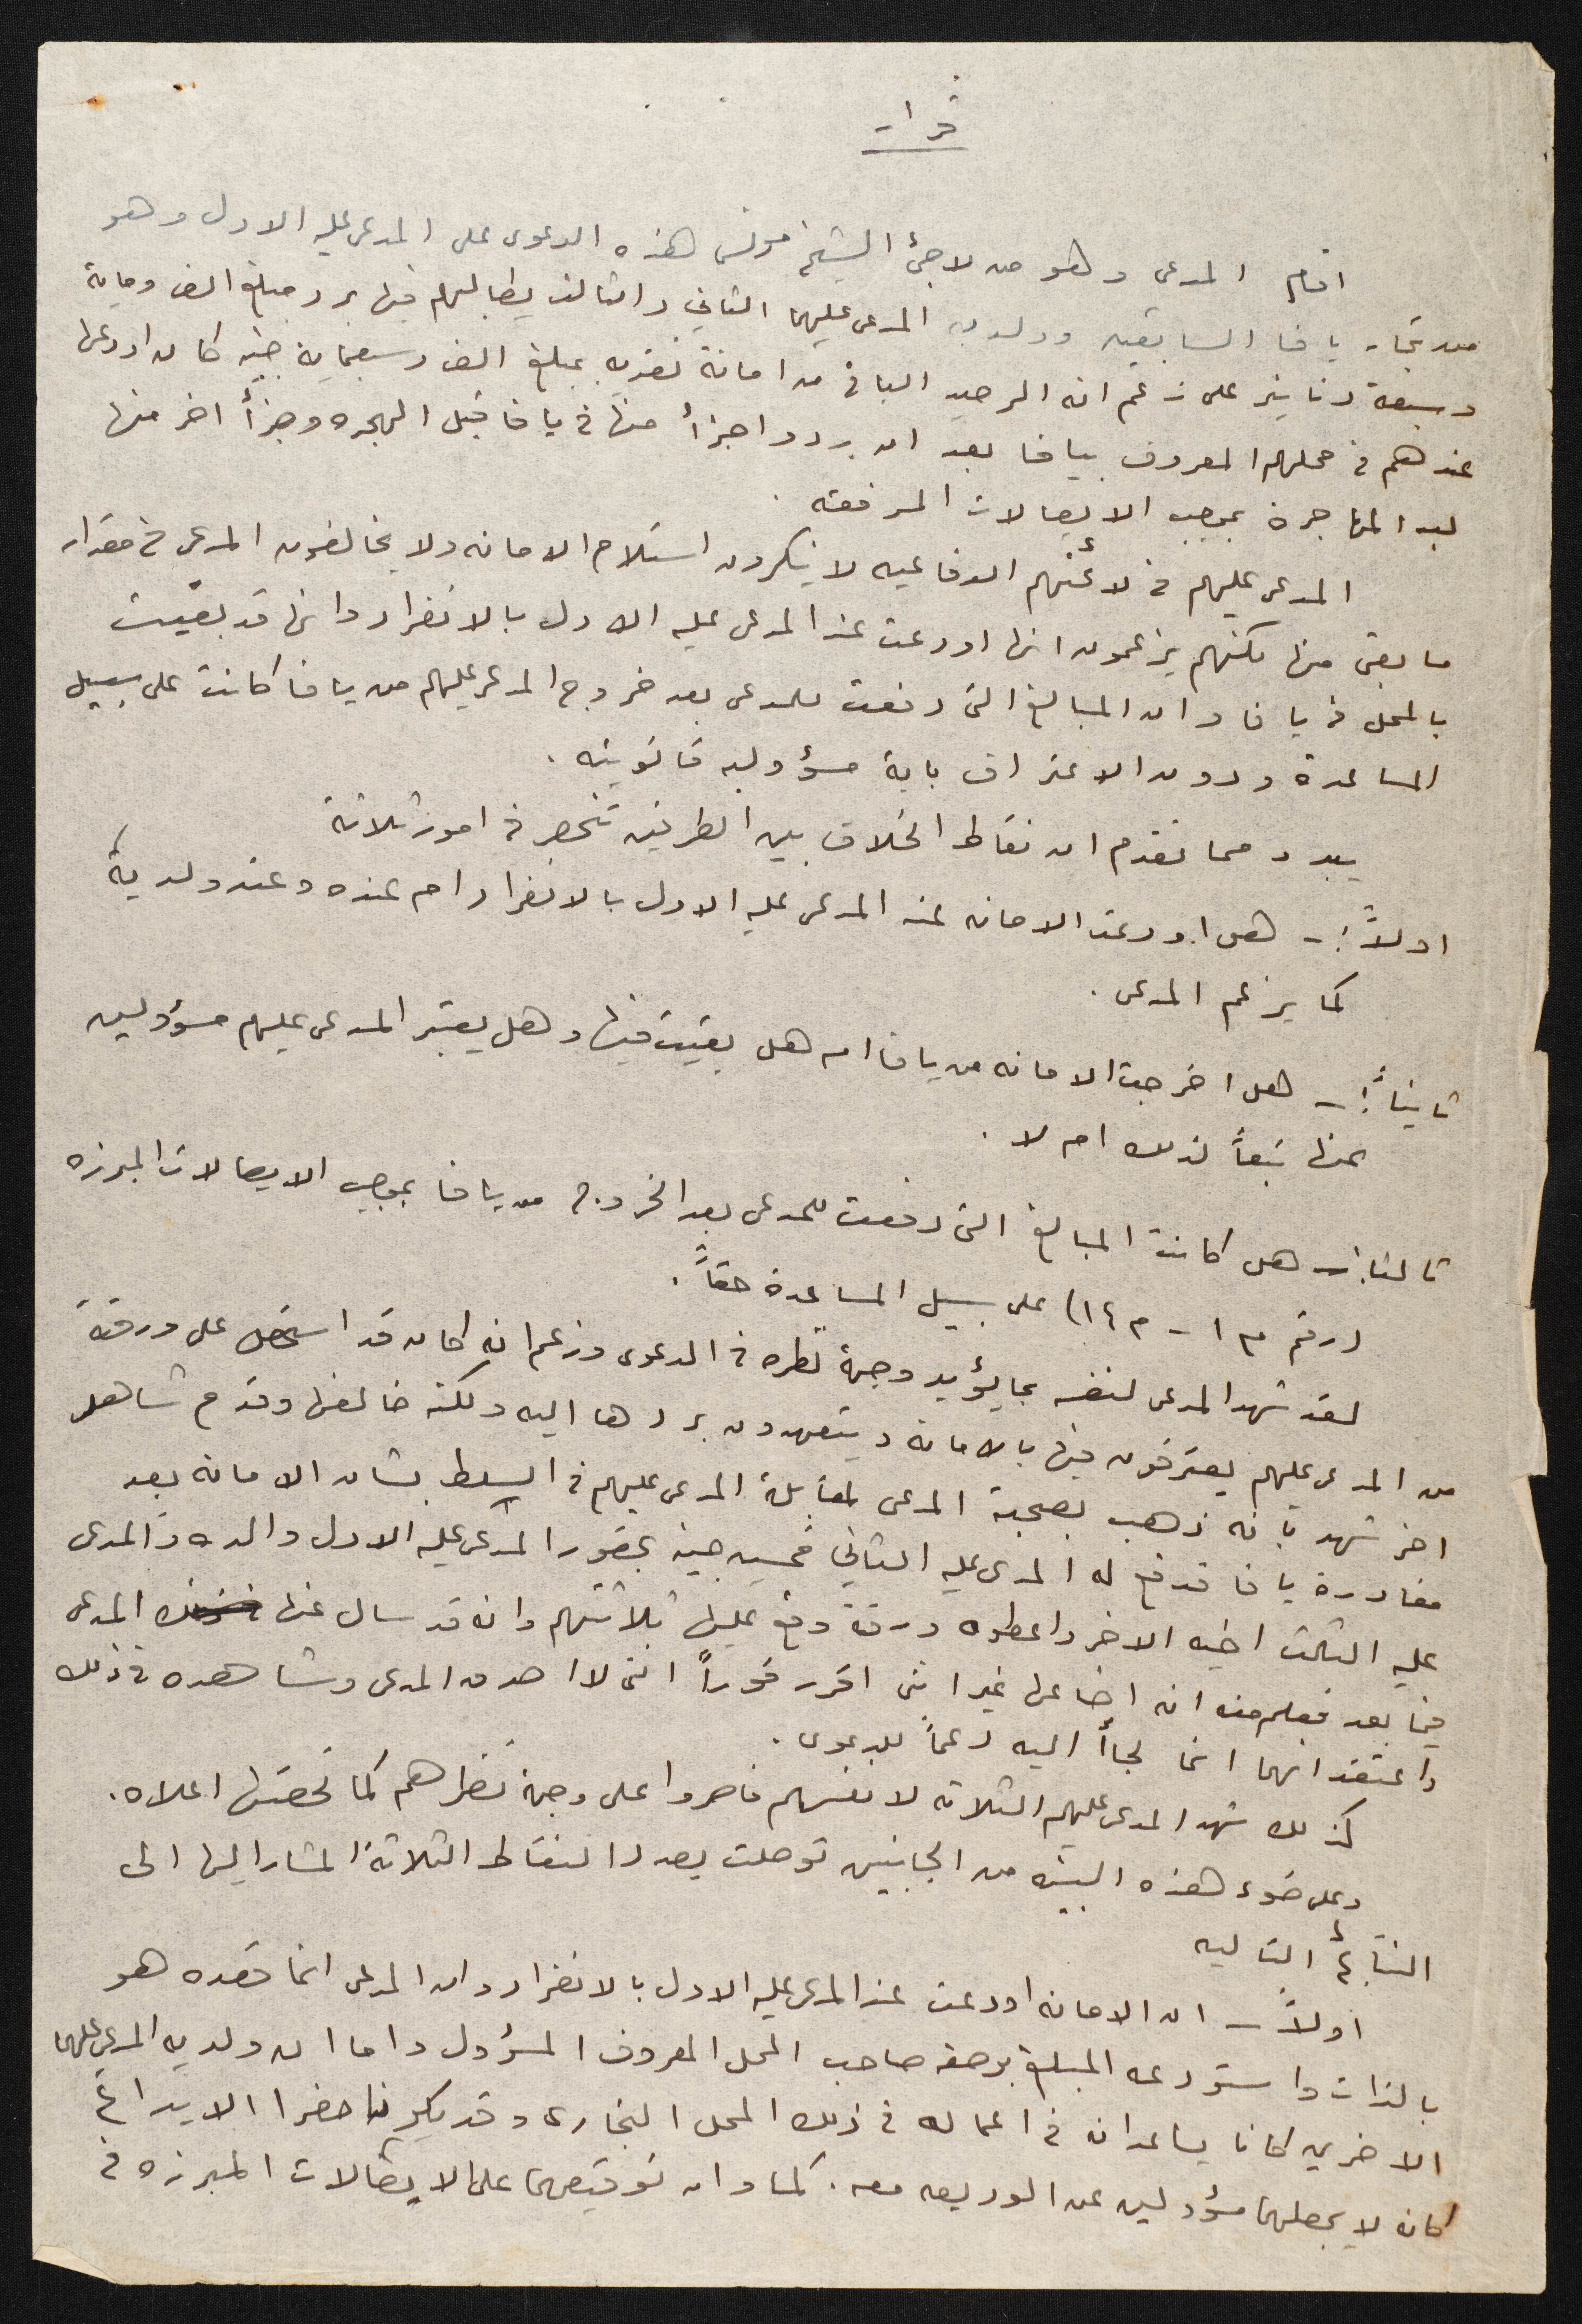 قرار
اقام المدعي وهو من لاجئ الشيخ مونس هذه الدعوى على المدعى عليه الاول وهو
من تجار يافا السابقين وولديه المدعى عليهما الثاني والثالث يطالبهم فيها برد مبلغ الف وماية
وسبعة دنانير على زعم انه الرصيد الباقي من امانة نقديه بمبلغ الف وسبعماية جنيه كان اودعها
عندهم في محلهم المعروف بيافا بعد ان ردوا جزأ منها في يافا قبل الهجره وجزأ اخر منها
بعد المهاجرة بموجب الايصالات المرفقه .
المدعى عليهم في لائحتهم الدفاعيه لا ينكرون استلام الامانه ولا يخالفون المدعي في مقدار
ما بقى منها لكنهم يزعمون انها اودعت عند المدعى عليه الاول بالانفراد وانها قد بقيت
بالمحل في يافا وان المبالغ التي دفعت للمدعي بعد خروج المدعى عليهم من يافا كانت على سبيل
المساعدة ودون الاعتراف باية مسؤوليه قانونيه .
يبدو مما تقدم ان نقاط الخلاف بين الطرفين تنحصر في امور ثلاثة
اولاً :- هل اودعت الامانه عند المدعى عليه الاول بالانفراد ام عنده وعند ولديه
كما يزعم المدعي .
ثانياً :- هل اخرجت الامانه من يافا ام هل بقيت فيها وهل يعتبر المدعى عليهم مسؤولين
عنها تبعاً لذلك ام لا .
ثالثا :- هل كانت المبالغ التي دفعت للمدعي بعد الخروج من يافا بموجب الايصالات المبرزه
(رقم م ١ - م ١٤) على سبيل المساعدة حقاً .
لقد شهد المدعي لنفسه بما يؤيد وجهة نظره في الدعوى وزعم انه كان قد استحصل على ورقة
من المدعى عليهم يعترفون فيها بالامانة ويتعهدون بردها اليه ولكنه ضاعت وقدم شاهد
اخر شهد بانه ذهب بصحبة المدعي لمقابلة المدعى عليهم في السلط بشان الامانه بعد
مغادرة يافا فدفع له المدعى عليه الثاني خمسين جنيه بحضور المدعى عليه الاول والده والمدعى
عليه الثالث اخيه الاخر واعطوه ورقة وقع عليها ثلاثتهم وانه قد سال عنها المدعي
فيما بعد فعلم منه انه اضاعها غير انني اقرر فوراً انني لا اصدق المدعي وشاهده في ذلك
واعتقد انهما انما لجأا اليه دعماً للدعوى .
كذلك شهد المدعى عليهم الثلاثه لانفسهم فاصروا على وجهة نظرهم كما لخصتها اعلاه .
وعلى ضوء هذه البينه من الجانبين توصلت بصدد النقاط الثلاثة المشار اليها الى
النتائج التاليه
اولاً - ان الامانه اودعت عند المدعى عليه الاول بالانفراد وان المدعي انما قصده هو
بالذات واستودعه المبلغ بوصفه صاحب المحل المعروف المسؤول واما ان ولديه المدعى عليهما
الاخرين كانا يساعدانه في اعماله في ذلك المحل التجاري وقد يكونا حضرا الايداع
كانه لا يجعلهما مسؤولين عن الوديعه معه . كما وان توقيعهما على الايصالات المبرزه في